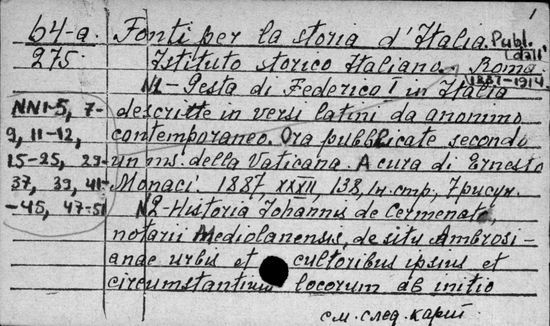 1
64-a. Fonti per la storia d'Italia. Publ.
275. Istituto storico Italiano. (dall'
Roma
1887-1914.
N1-Gesta di Federico I in Italia
NN1-5, 7- descritte in versi latini da anonimo
9, 11-12, contemporaneo. Ora pubblicate secondo
15-25, 29- un ms. della Vaticana. A cura di Ernesto
37, 39, 41- Monaci. 1887, XXXII, 138, 1н. стр., 7 рисун.
-45, 47-51 N2-Historia Johannis de Cermenate
notarii Mediolanensis, de situ Ambrosi-
anae urbis et cultoribus ipsius et
circumstantium locorum ab initio
см. след. карт.